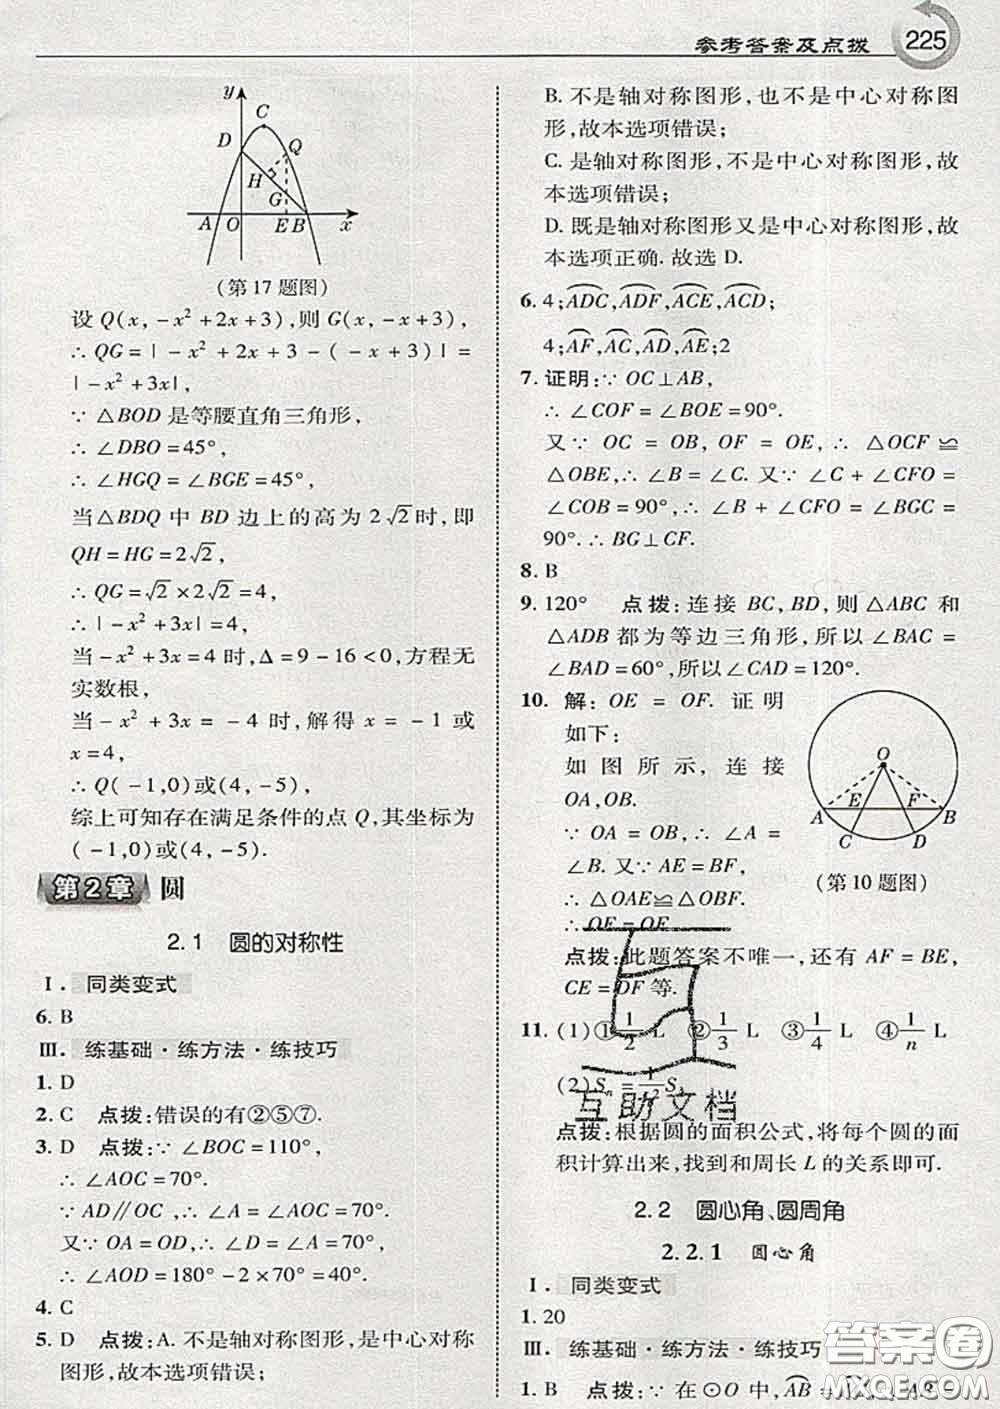 参考答案及点拨
225
y
C
D
Q
H
G
A
O
E
B
x
(第17题图)
设Q(x,-x²+2x+3),则G(x,-x+3),
∴QG=|-x²+2x+3-(-x+3)|=
|-x²+3x|,
∵△BOD是等腰直角三角形,
∴∠DBO=45°,
∴∠HGQ=∠BGE=45°,
当△BDQ中BD边上的高为2√2时,即
QH=HG=2√2,
∴QG=√2×2√2=4,
∴|-x²+3x|=4,
当-x²+3x=4时,Δ=9-16<0,方程无
实数根,
当-x²+3x=-4时,解得x=-1或
x=4,
∴Q(-1,0)或(4,-5),
综上可知存在满足条件的点Q,其坐标为
(-1,0)或(4,-5).
第2章 圆
2.1 圆的对称性
Ⅰ.同类变式
6.B
Ⅲ.练基础·练方法·练技巧
1.D
2.C 点拨:错误的有②⑤⑦.
3.D 点拨:∵∠BOC=110°,
∴∠AOC=70°.
∵AD∥OC,∴∠A=∠AOC=70°.
又∵OA=OD,∴∠D=∠A=70°.
∴∠AOD=180°-2×70°=40°.
4.C
5.D 点拨:A.不是轴对称图形,是中心对称
图形,故本选项错误;
B.不是轴对称图形,也不是中心对称图
形,故本选项错误;
C.是轴对称图形,不是中心对称图形,故
本选项错误;
D.既是轴对称图形又是中心对称图形,故
本选项正确.故选D.
6.4;ADC,ADF,ACE,ACD;
4;AF,AC,AD,AE;2
7.证明:∵OC⊥AB,
∴∠COF=∠BOE=90°.
又∵OC=OB,OF=OE,∴△OCF≌
△OBE,∴∠B=∠C.又∵∠C+∠CFO=
∠COB=90°,∴∠B+∠CFO=∠BGC=
90°.∴BG⊥CF.
8.B
9.120° 点拨:连接BC,BD,则△ABC和
△ADB都为等边三角形,所以∠BAC=
∠BAD=60°,所以∠CAD=120°.
10.解:OE=OF.证明
如下:
如图所示,连接
OA,OB.
∵OA=OB,∴∠A=
∠B.又∵AE=BF
∴△OAE≌△OBF.
∴OE=OF
O
A
E
F
B
C
D
(第10题图)
点拨:此题答案不唯一,还有AF=BE,
CE=DF等.
11.(1)①1/2 L ②1/3 L ③1/4 L ④1/n L
互助文档
点拨:根据圆的面积公式,将每个圆的面
积计算出来,找到和周长L的关系即可.
2.2 圆心角、圆周角
2.2.1 圆心角
Ⅰ.同类变式
1.20
Ⅲ.练基础·练方法·练技巧
1.B 点拨:∵在⊙O中,AB=
答案圈
MXQE.COM